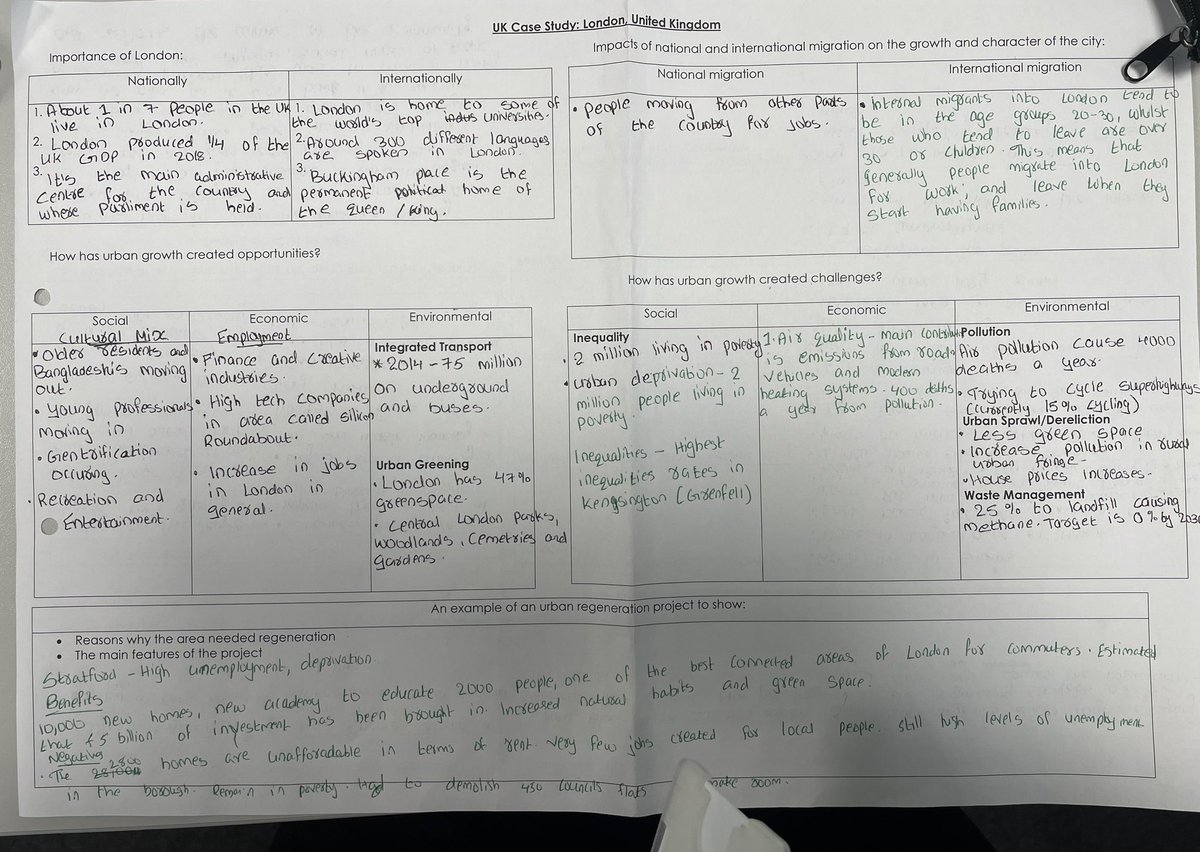 UK Case Study: London, United Kingdom
Importance of London:
Nationally
1. About 1 in 7 People in the UK
live in London.
2. London produced 1/4 of the
UK GDP in 2018.
3. It's the main administrative
Centre for the country and
where Parliment is held.
Internationally
1. London is home to some of
the world's top universities.
2. Around 300 different languages
are spoken in London.
3. Buckingham place is the
permanent political home of
the queen / king.
Impacts of national and international migration on the growth and character of the city:
National migration
• People moving from other parts
of the country for jobs.
International migration
• Internal migrants into London tend to
be in the age groups 20-30, whilst
those who tend to leave are over
30 or children. This means that
generally people migrate into London
for work, and leave when they
start having families.
How has urban growth created opportunities?
Social
Cultural Mix
• Older residents and
Bangladeshis moving
out.
• Young professionals
moving in
• Gentrification
occuring.
• Recreation and
Entertainment.
Economic
Employment
• Finance and Creative
industries.
• High tech companies
in area called silicon
Roundabout.
• Increase in jobs
in London in
general.
Environmental
Integrated Transport
* 2014 - 75 million
on underground
and buses.
Urban Greening
• London has 47%
greenspace.
• Central London Parks,
woodlands, Cemetries and
gardens.
How has urban growth created challenges?
Social
Inequality
• 2 million living in poverty
• Urban deprivation - 2
million people living in
poverty.
Inequalities - Highest
inequalities rates in
Kengsington (Grenfell)
Economic
1. Air quality - main contributer
is emissions from road
vehicles and modern
heating systems. 400 deths
a year from pollution.
Environmental
Pollution
Air pollution cause 4000
deaths a year.
• Trying to cycle superhighways
(currently 15% cycling)
Urban Sprawl/Dereliction
• Less green space
• Increase pollution in rural
urban fringe.
• House prices increases.
Waste Management
• 25% to landfill causing
methane. Target is 0% by 2030
An example of an urban regeneration project to show:
• Reasons why the area needed regeneration
• The main features of the project
Stratford - High unemployment, deprivation.
Benefits
10,000 new homes, new academy to educate 2000 people, one of the best connected areas of London for commuters. Estimated
that £5 billion of investment has been brought in. Increased natural habits and green space.
Negatives
• The 2800 homes are unaffordable in terms of rent. Very few jobs created for local people. still high levels of unemployment
in the borough. Remain in poverty. Had to demolish 450 councils flats make room.